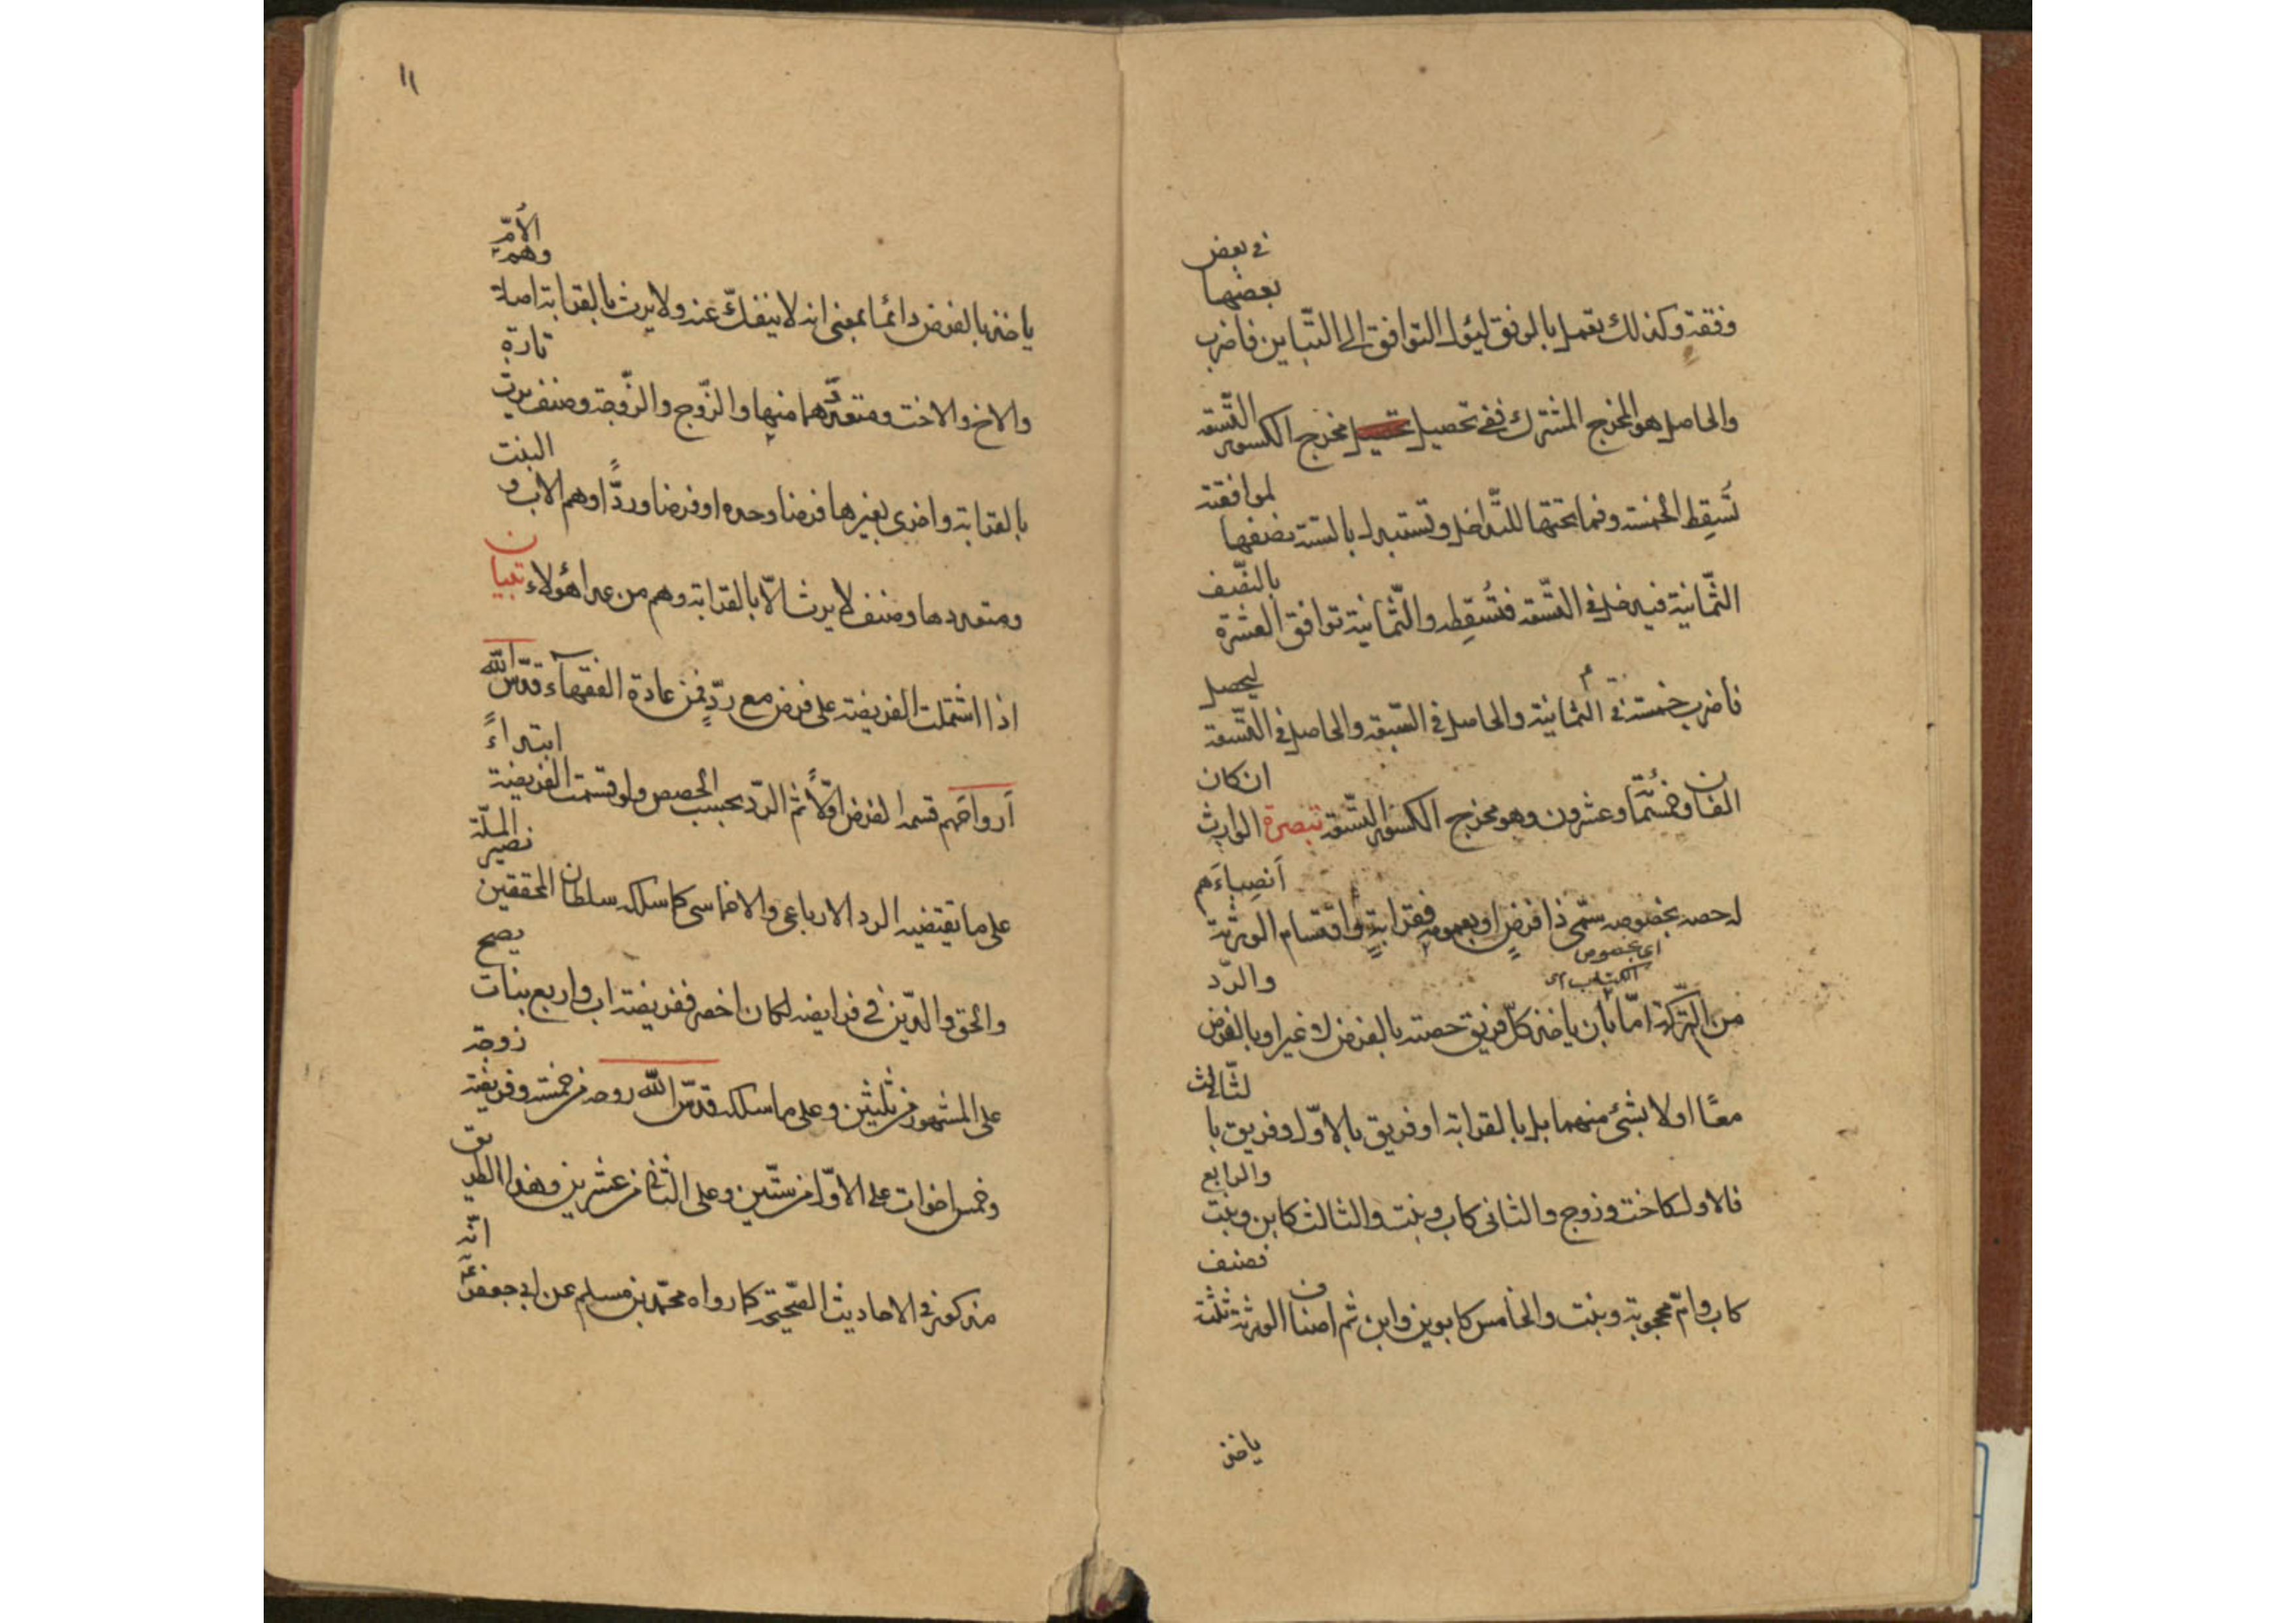 وفقه وكذلك تعمل بالوفق ليؤل التوافق الى التّباين فاضرب بعضها في بعض
والحاصل هو المخرج المشترك ففي تحصيل مخرج الكسور التّسعة
تُسقِط الخمسة وما تحتها للتّداخل وتستبدل بالستة نصفها لموافقته
الثّمانية فيدخل في التّسعة فتُسقِطه والثّمانية توافق العشرة بالنّصف
فاضرب خمسة في الثمانية والحاصل في السّبعة والحاصل في التّسعة ليحصل
الفان وخمسُمائة وعشرون وهو مخرج الكسور التّسعة تبصرة الوارث ان كان
له حصه بخصوصه سمّى ذا فرضٍ او بعمومه فقرابةٍ واقتسام الورثة أنصباءَهم
اى بخصوص
الكتاب
من التّركة امّا بأن ياخذ كلّ فريق حصته بالفرض لا غير او بالفرض والرّد
معًا او لا بشئ منهما بل بالقرابة او فريق بالاوّل وفريق بالثّالث
فالاول كاخت وزوج والثانى كاب وبنت والثالث كابن وبنت والرابع
كاب وامّ محجوبة وبنت والخامس كابوين وابن ثم اصناف الورثة ثلثة فصنف
ياخذ
١١
ياخذ بالفرض دائما بمعنى انه لا ينفكّ عنه ولا يرث بالقرابة اصلا وهم الأمّ
والاخ والاخت ومتعدّدهما منها والزّوج والزّوجة وصنف يرث تارة
بالقرابة واخرى بغيرها فرضا وحده او فرضا وردًّا وهم الاب والبنت
ومتعددها وصنف لا يرث الّا بالقرابة وهم من عدا هؤلاء تبيان
اذا اشتملت الفريضة على فرض مع ردٍّ فمن عادة الفقهاء قدّس الله
أرواحَهم قسمة الفرض اوّلاً ثم الردّ بحسب الحصص ولو قسمت الفريضة ابتداءً
على ما تقتضيه الرد الارباعى والاخماسى كما سلكه سلطان المحققين نصير الملّة
والحق والدّين في فرايضه لكان اخصر ففريضة اب واربع بنات يصح
على المشهور من ثلثين وعلى ما سلكه قدّس اللّه روحه من خمسة وفريضة زوجة
وخمس اخوات على الاوّل من ستّين وعلى الثانى من عشرين وهذا الطريق
مذكور في الاحاديث الصّحيحة كما رواه محمّد بن مسلم عن ابى جعفر ع انّه